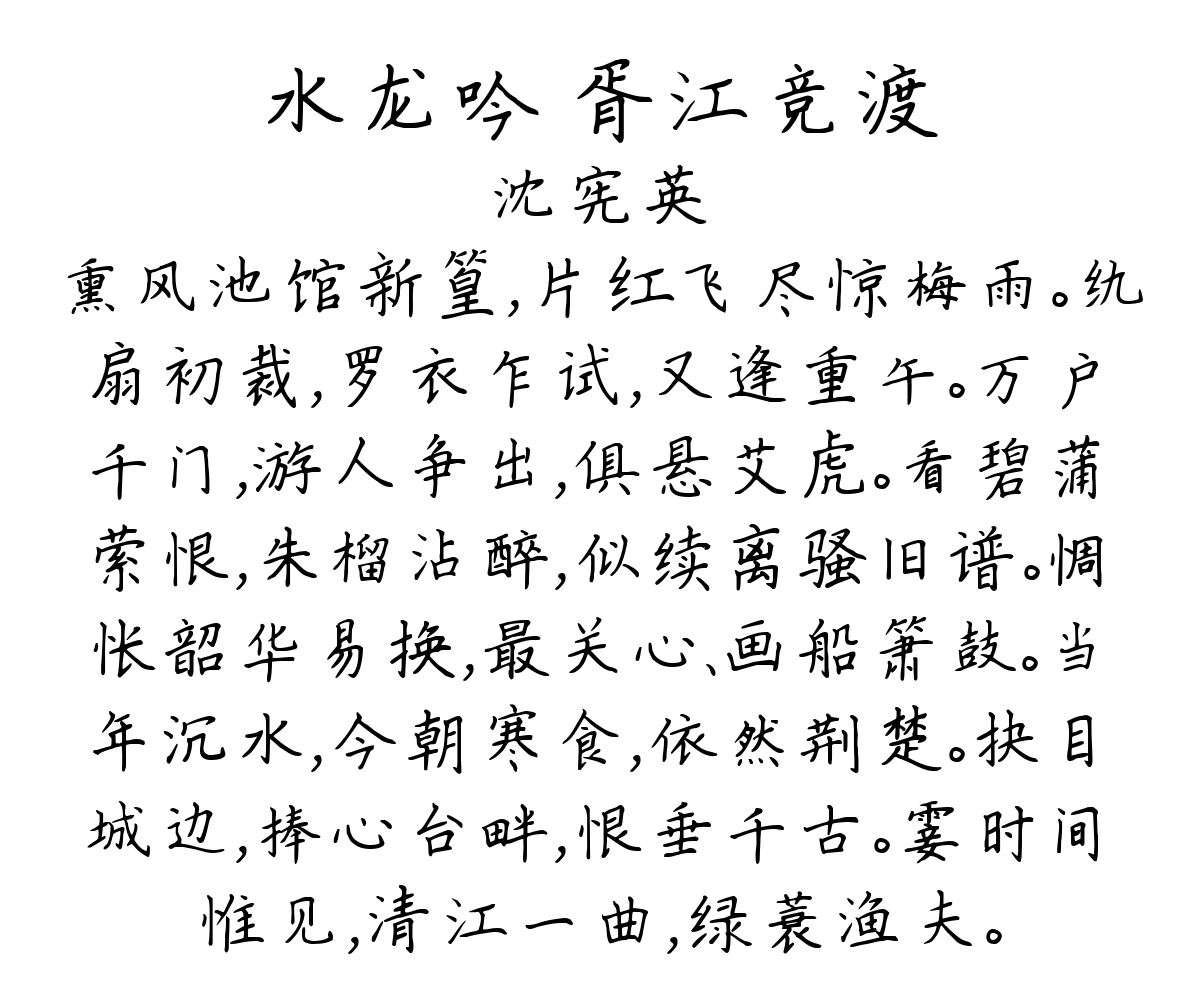 水龙吟 胥江竞渡
沈宪英
熏风池馆新篁，片红飞尽惊梅雨。纨
扇初裁，罗衣乍试，又逢重午。万户
千门，游人争出，俱悬艾虎。看碧蒲
萦恨，朱榴沾醉，似续离骚旧谱。惆
怅韶华易换，最关心、画船箫鼓。当
年沉水，今朝寒食，依然荆楚。抉目
城边，捧心台畔，恨垂千古。霎时间
惟见，清江一曲，绿蓑渔夫。